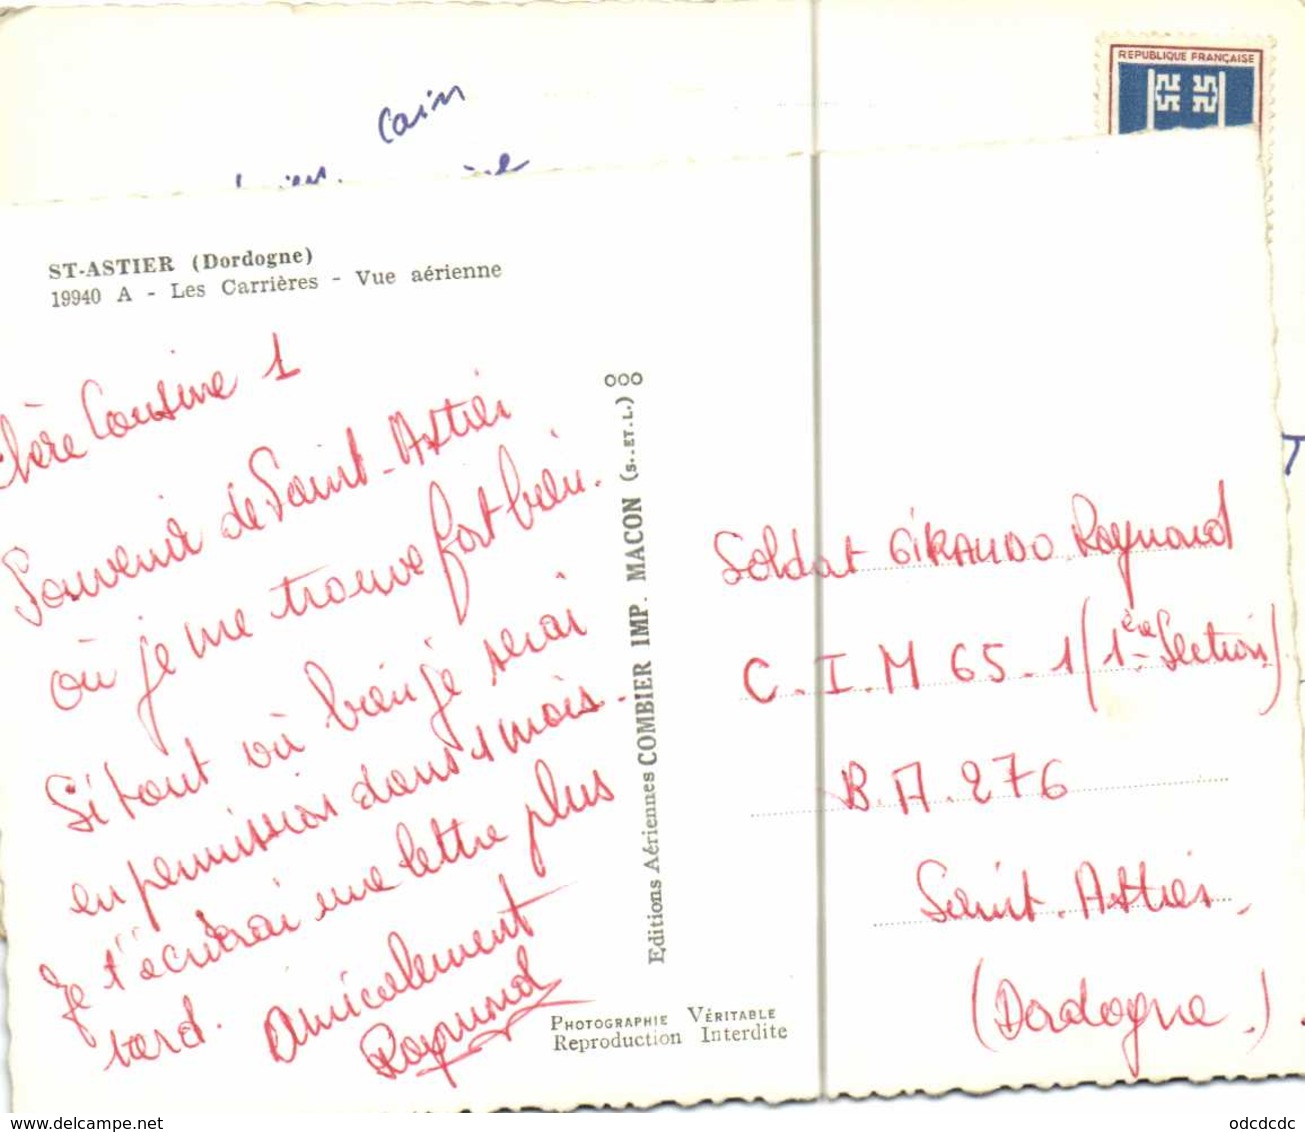 REPUBLIQUE FRANÇAISE
ST-ASTIER (Dordogne)
19940 A - Les Carrières - Vue aérienne
chère Cousine 1
Souvenir de Saint-Astier
où je me trouve fort bien.
Si tout va bien je serai
en permission dans 1 mois.
Je t'écrirai une lettre plus
tard. Amicalement
Raymond
Editions Aériennes COMBIER IMP. MACON (S.-ET-L.) OOO
PHOTOGRAPHIE VÉRITABLE
Reproduction Interdite
Soldat GIRAUDO Raymond
C.I.M 65-1 (1ère Section)
B.A.276
Saint-Astier.
(Dordogne.)
www.delcampe.net
odcdcdc